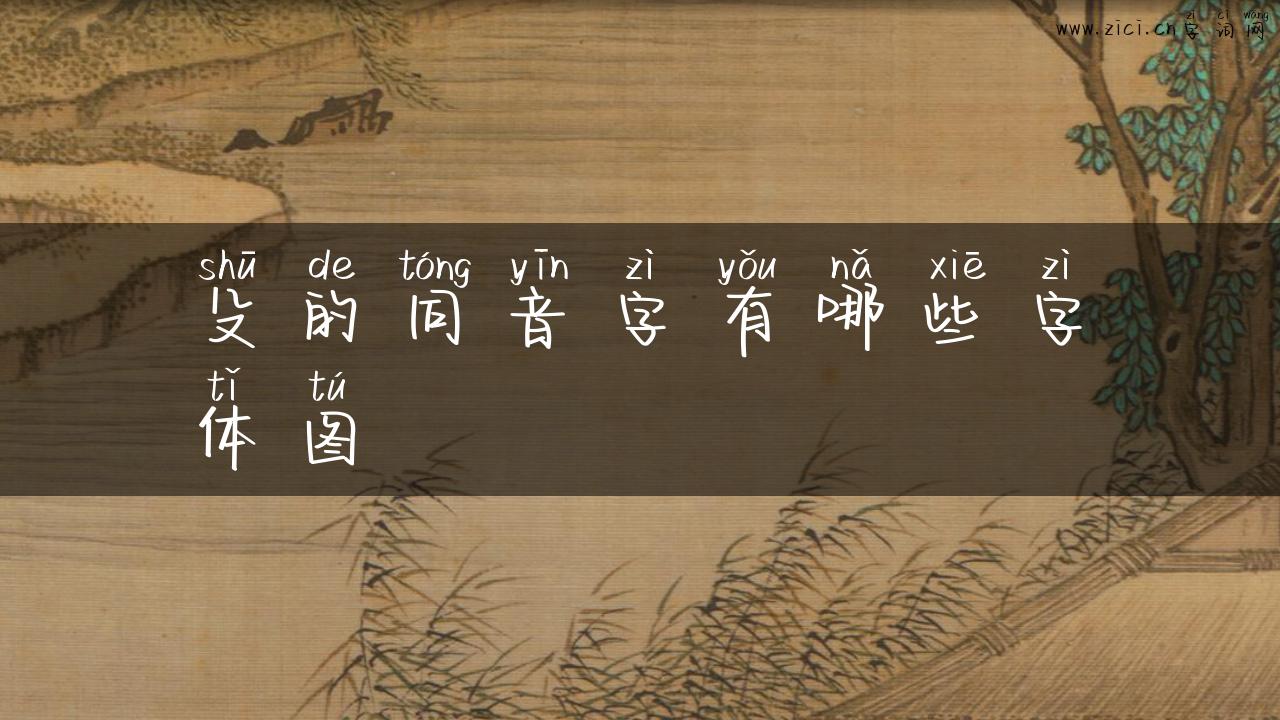 zì cí wǎng
www.zici.cn字词网
shū de tóng yīn zì yǒu nǎ xiē zì
殳的同音字有哪些字
tǐ tú
体图